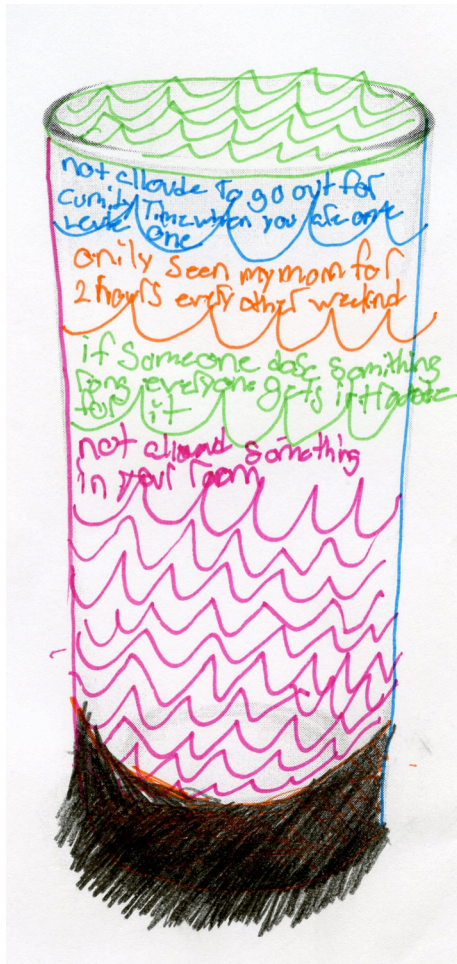 not alloude to go out for
cumity Time when you are one
levle one
onily seen my mom for
2 hours every other weekend
if someone dose somithing
rong everyone gets in troube
for it
not alloud something
in your room